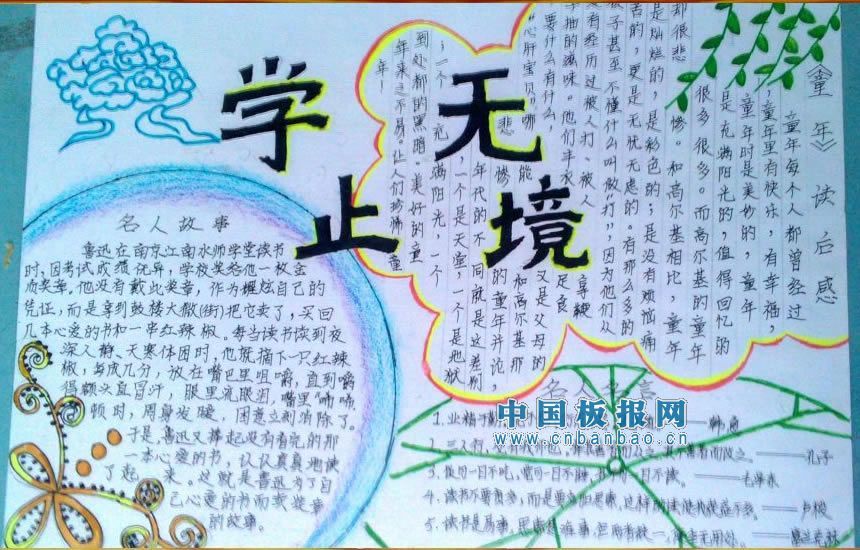 学无止境
名人故事
鲁迅在南京江南水师学堂读书
时,因考试成绩优异,学校奖给他一枚金
质奖章。他没有戴此奖章,作为炫耀自己的
凭证,而是拿到鼓楼大(街)把它卖了,买回
几本心爱的书和一串红辣椒。每当读书读到夜
深人静、天寒体困时,他就摘下一只红辣
椒,分成几分,放在嘴巴里咀嚼,直到嚼
得额头直冒汗,眼里流眼泪,嘴里"唏唏"
顿时,周身发暖,困意立刻消除了
于是鲁迅又捧起没有看完的那
一本心爱的书,认认真真地读
了起来。这就是鲁迅为了自
己心爱的书而卖奖章
的故事。
《童年》读后感
童年每个人都曾经过
童年里有快乐,有幸福,
童年时是美妙的,童年
是充满阳光的,值得回忆的
很多很多。而高尔基的童年
却很悲惨。和高尔基相比,童年
是灿烂的,是彩色的;是没有烦恼痛
苦的,更是无忧无虑的。有那么多的
孩子甚至不懂什么叫做"打",因为他们从
没有经历过被人打、被人
手抽的滋味。他们丰衣足食
要什么有什么,又是父母的
"心肝宝贝"哪能和高尔基那
悲惨的童年并论,
年代的不同就是这差别
一个是天堂,一个是地狱
;一个充满阳光,一个
到处都的黑暗。美好的童
年来之不易。让人们珍惜童
年!
名人名言
1、业精于勤 ——韩愈
2、三人行, ——孔子
3、饭可一日不吃,觉可一日不睡, 一日不读。——毛泽东
4、读书不要贪多,而是要多加思索,这样的读 益不多。——卢梭
5、读书是易事,思索是难事,但两者缺一,便全无用处。——富兰克林
中国板报网
www.cnbanbao.cn